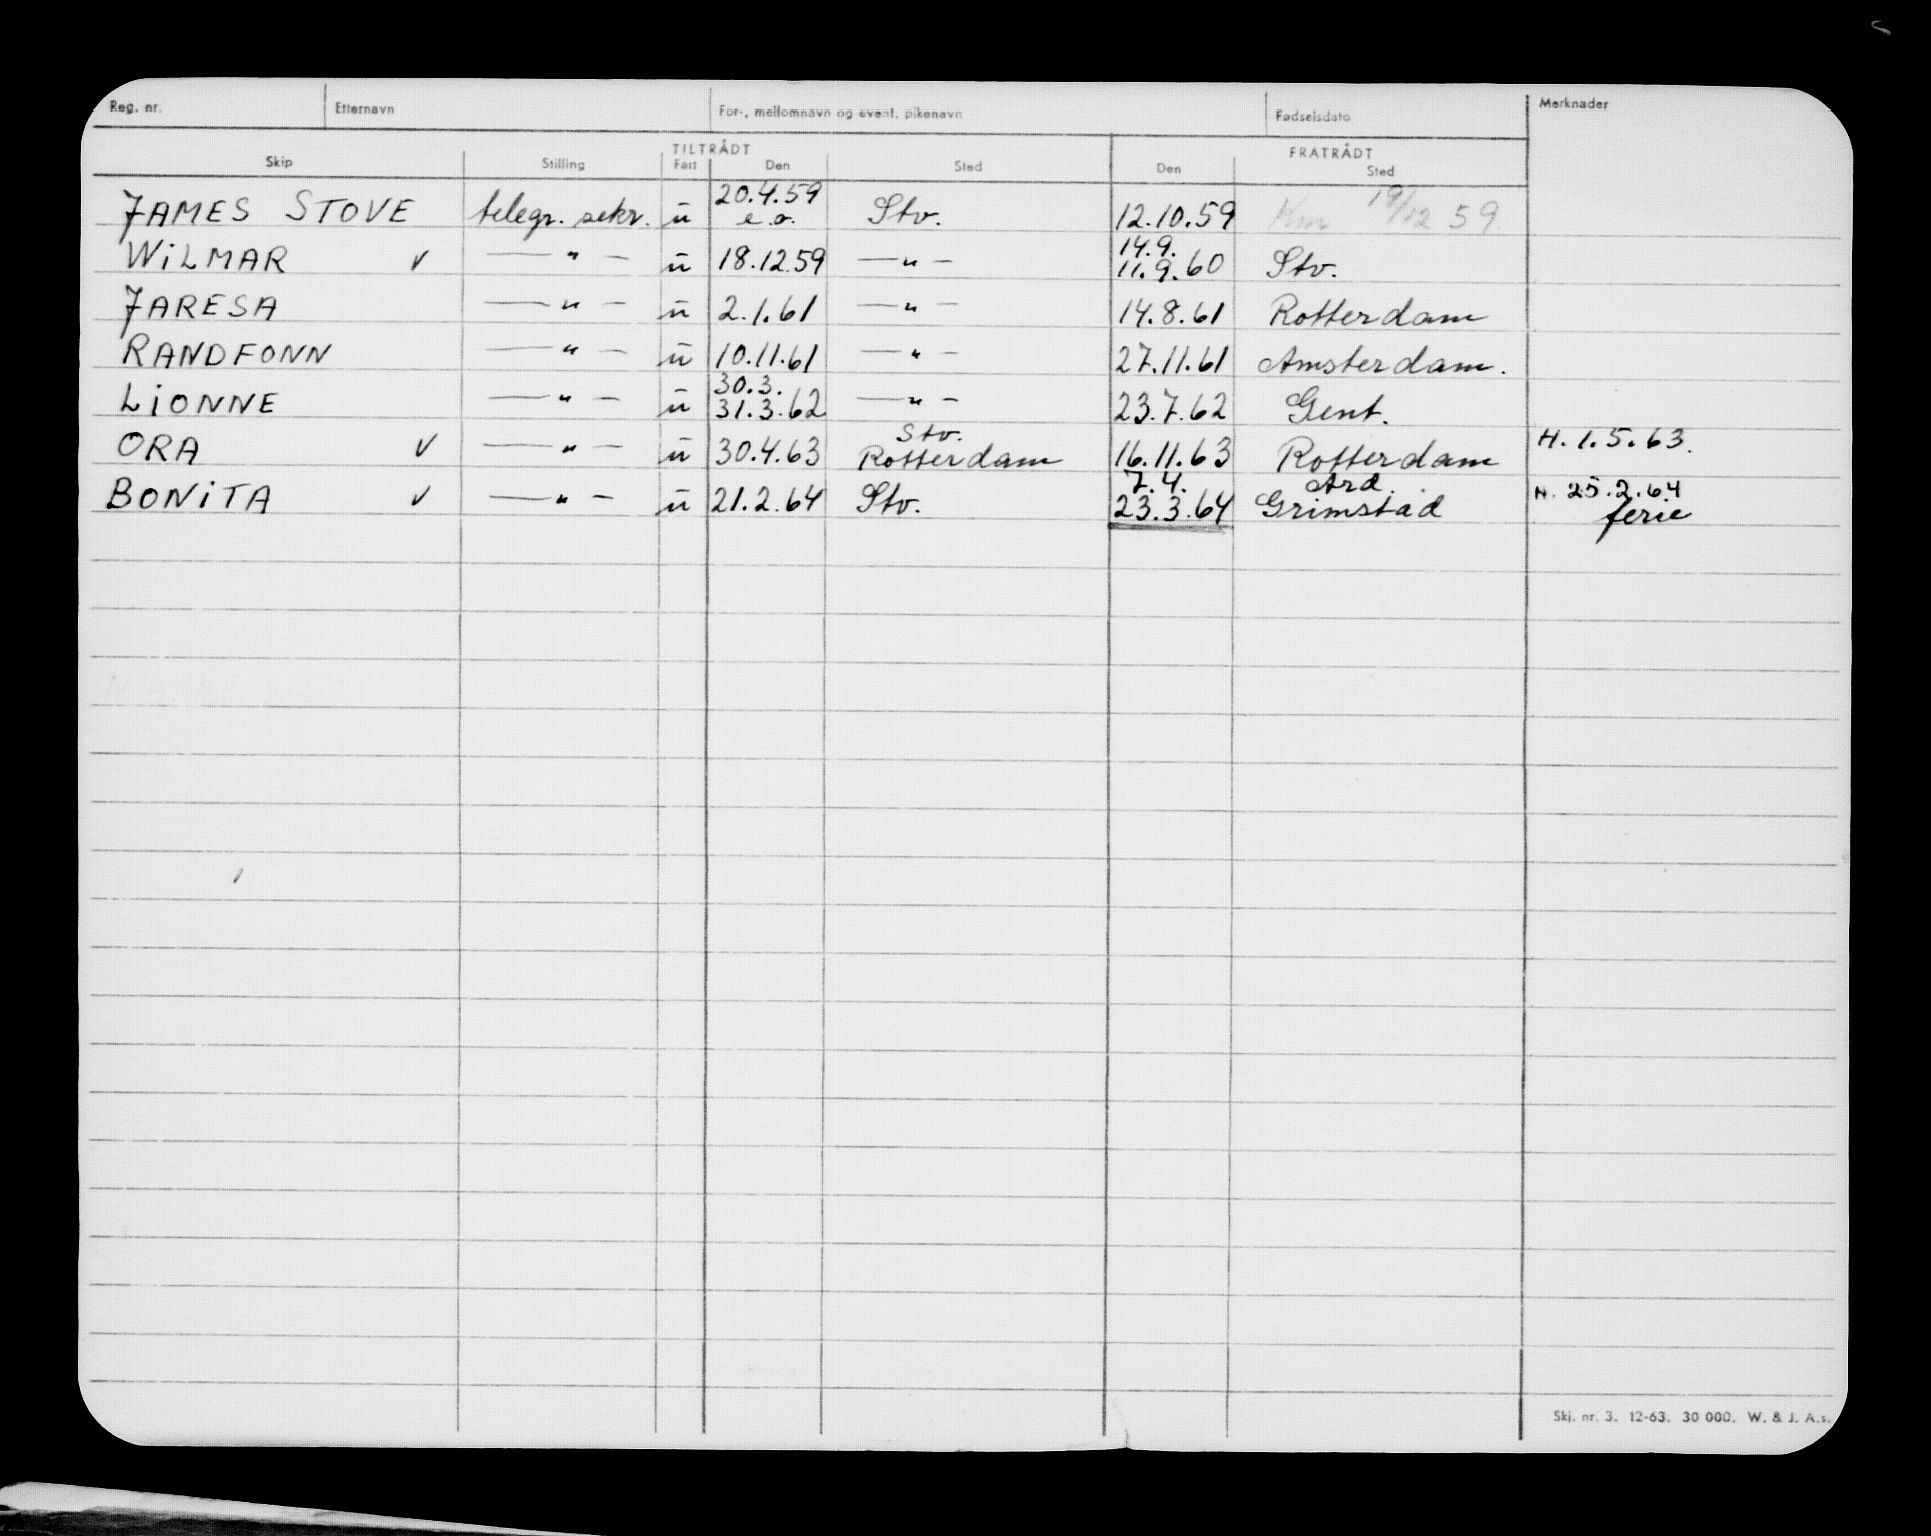 Reg. nr. Etternavn For-, mellomnavn og event. pikenavn Fødselsdato Merknader
TILTRÅDT FRATRÅDT
Skip Stilling Fart Den Sted Den Sted
20.4.59 19/12 59
JAMES STOVE telegr. sekr. ū e.o. Stv. 12.10.59
14.9.
WiLMAR v —"— ū 18.12.59 —"— 11.9.60 Stv.
JARESA —"— ū 2.1.61 —"— 14.8.61 Rotterdam
RANDFONN —"— ū 10.11.61 —"— 27.11.61 Amsterdam.
30.3.
LiONNE —"— ū 31.3.62 —"— 23.7.62 Gent.
Stv.
ORA v —"— ū 30.4.63 Rotterdam 16.11.63 Rotterdam H. 1.5.63.
7.4. Ard. H. 25.2.64
BONiTA v —"— ū 21.2.64 Stv. 23.3.64 Grimstad ferie
Skj. nr. 3. 12-63. 30 000. W. & J. A.s.